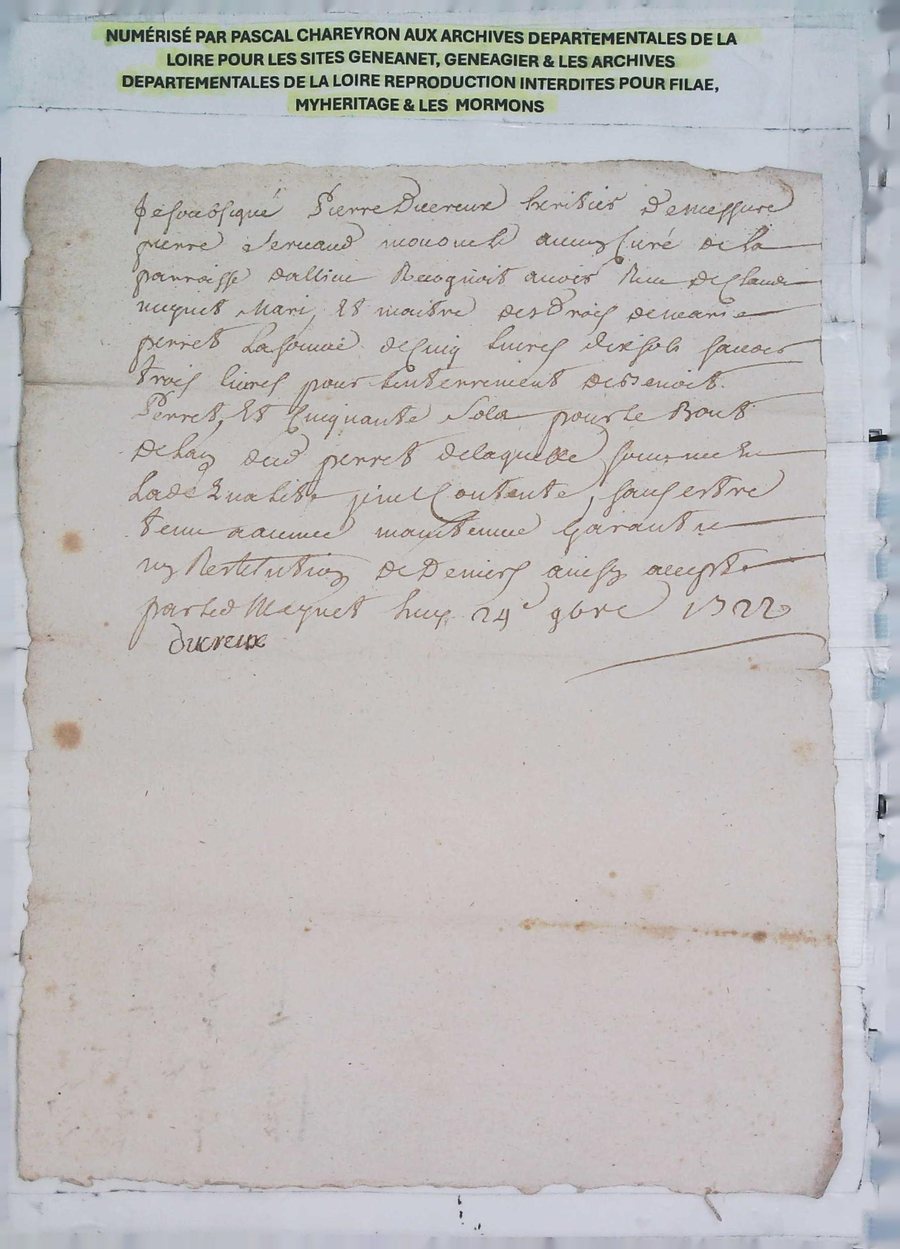 NUMÉRISÉ PAR PASCAL CHAREYRON AUX ARCHIVES DEPARTEMENTALES DE LA
LOIRE POUR LES SITES GENEANET, GENEAGIER & LES ARCHIVES
DEPARTEMENTALES DE LA LOIRE REPRODUCTION INTERDITES POUR FILAE,
MYHERITAGE & LES MORMONS
Je soubsigné Pierre Ducreux heritier de messire
pierre curé de la
parroisse Recognoit avoir Receu de Claude
Mari et maitre des drois de marie
perret La somme de cinq livres dix sols savoir
trois livres pour Lenterrement de Benoit
Perret, Et Cinquante Sols pour le Bout
de Lan dud perret de laquelle somme en
Lade qualite je me Contente, sans estre
tenu a aucune maintenue Garantie
ny Restitution de Deniers ainsy accepte
par led huy 24e 9bre 1722
ducreux